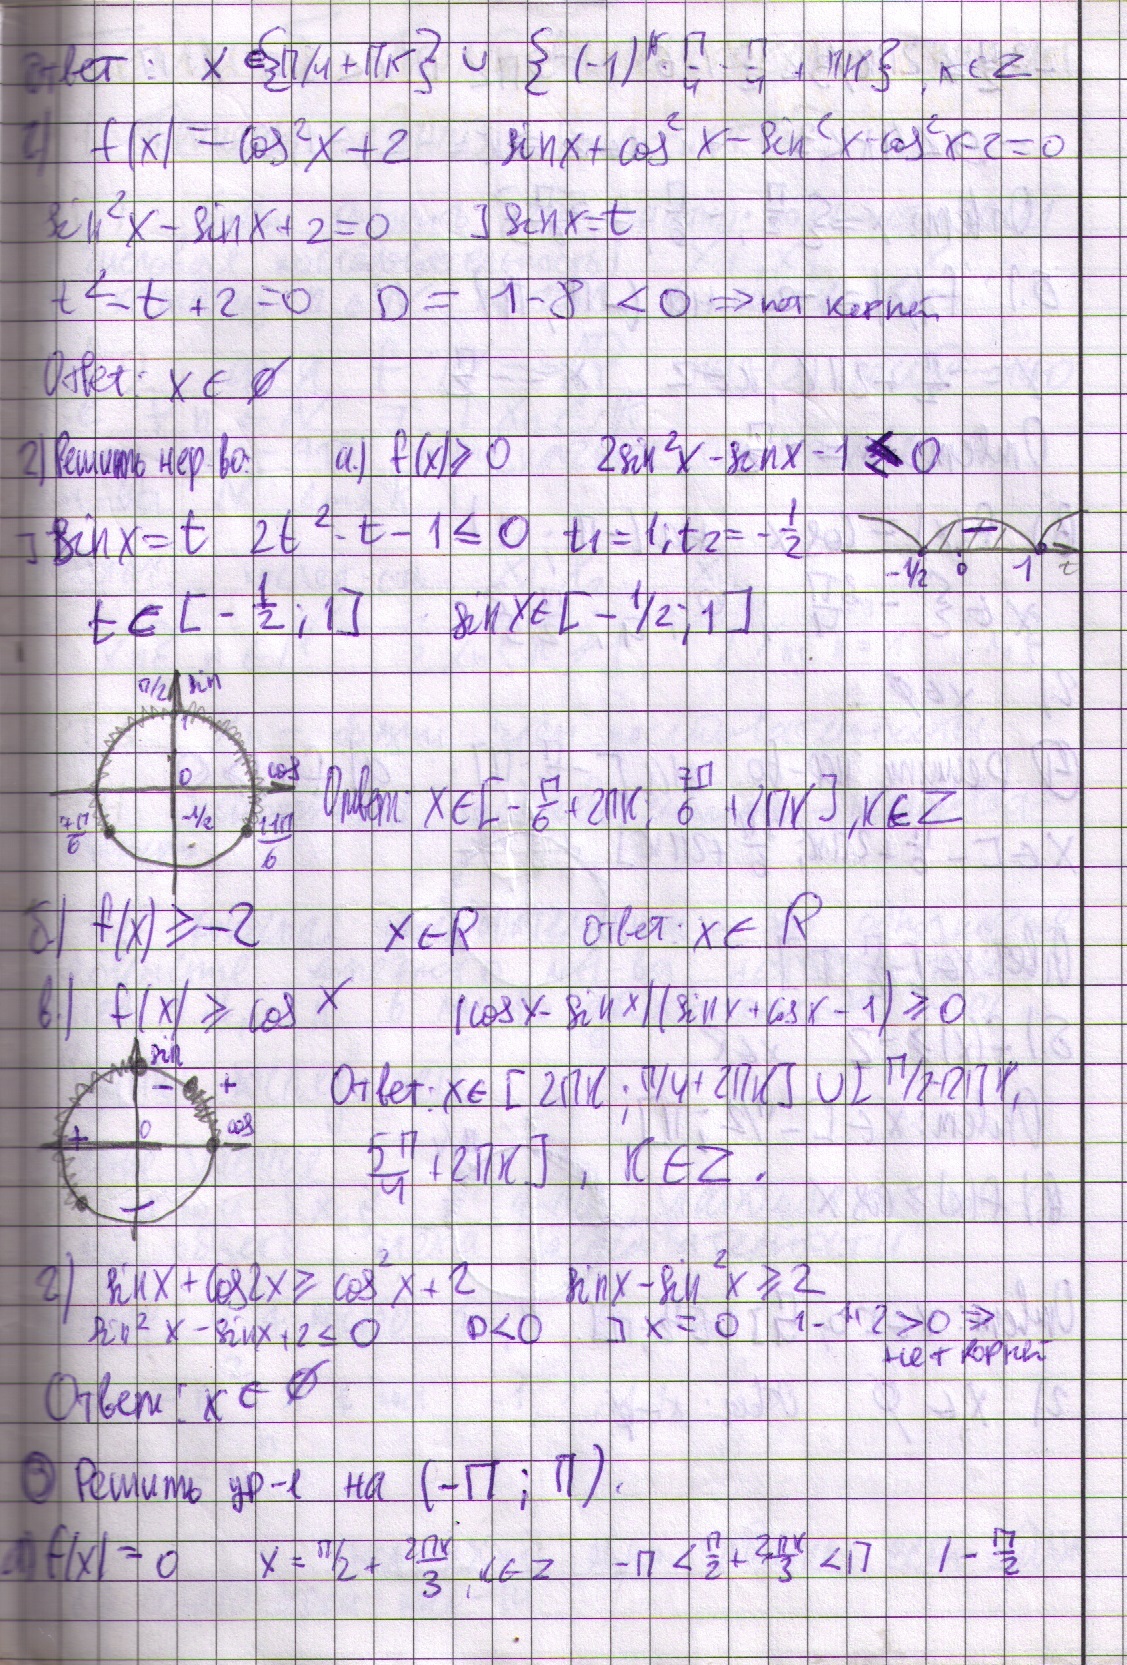 Ответ: x ∈ {π/4 + πk} ∪ { (-1)^k · π/4 - π/4 + πk}, k ∈ Z
г) f(x) = cos²x + 2 sinx + cos²x - sin²x - cos²x - 2 = 0
sin²x - sinx + 2 = 0 ] sinx = t
t² - t + 2 = 0 D = 1 - 8 < 0 => нет корней
Ответ: x ∈ ∅
2) Решить нер-ва: а.) f(x) ≥ 0 2sin²x - sinx - 1 ≤ 0
] sinx = t 2t² - t - 1 ≤ 0 t₁ = 1; t₂ = -1/2
-1/2 0 1 t
t ∈ [-1/2; 1] sinx ∈ [-1/2; 1]
π/2 sin
1
0 cos
7π/6 -1/2 11π/6
Ответ: x ∈ [-π/6 + 2πk; 7π/6 + 2πk], k ∈ Z
б) f(x) ≥ -2 x ∈ R Ответ: x ∈ R
в.) f(x) ≥ cos x (cosx - sinx)(sinx + cosx - 1) ≥ 0
sin
- +
+ 0 cos
-
Ответ: x ∈ [2πk; π/4 + 2πk] ∪ [π/2 + 2πk;
5π/4 + 2πk], k ∈ Z.
г) sinx + cos2x ≥ cos²x + 2 sinx - sin²x ≥ 2
sin²x - sinx + 2 ≤ 0 D < 0 ] x = 0 2 > 0 =>
нет корней
Ответ: x ∈ ∅
③ Решить ур-е на (-π; π).
а) f(x) = 0 x = π/2 + 2πk/3, k ∈ Z -π < π/2 + 2πk/3 < π | - π/2